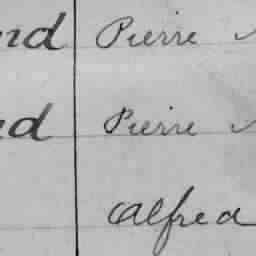 nd Pierre
nd Pierre
Alfred